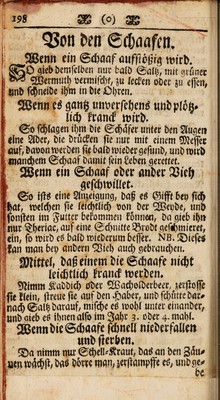 198 (o)
Von den Schaafen.
Wenn ein Schaaf auffstößig wird.
SO gieb demselben nur bald Saltz, mit grüner
Wermuth vermischt, zu lecken oder zu essen,
und schneide ihm in die Ohren.
Wenn es gantz unversehens und plötz-
lich kranck wird.
So schlagen ihm die Schäfer unter den Augen
eine Ader, die drücken sie nur mit einem Messer
auf, davon werden sie bald wieder gesund, und wird
manchem Schaaf damit sein Leben gerettet.
Wenn ein Schaaf oder ander Vieh
geschwillet.
So ists eine Anzeigung, daß es Gifft bey sich
hat, welches sie leichtlich von der Weyde, und
sonsten im Futter bekommen können, da gieb ihm
nur Theriac, auf eine Schnitte Brodt geschmieret,
ein, so wird es bald wiederum besser. NB. Dieses
kan man bey andern Vieh auch gebrauchen.
Mittel, daß einem die Schaafe nicht
leichtlich kranck werden.
Nimm Kaddich oder Wacholderbeer, zerstosse
sie klein, streue sie auf den Haber, und schütte dar-
nach Saltz darauf, mische es wohl unter einander,
und gieb es ihnen also im Jahr 3. oder 4. mahl.
Wenn die Schaafe schnell niederfallen
und sterben.
Da nimm nur Schell-Kraut, das an den Zäu-
nen wächst, das dörre man, zerstampff es, und ge-
be